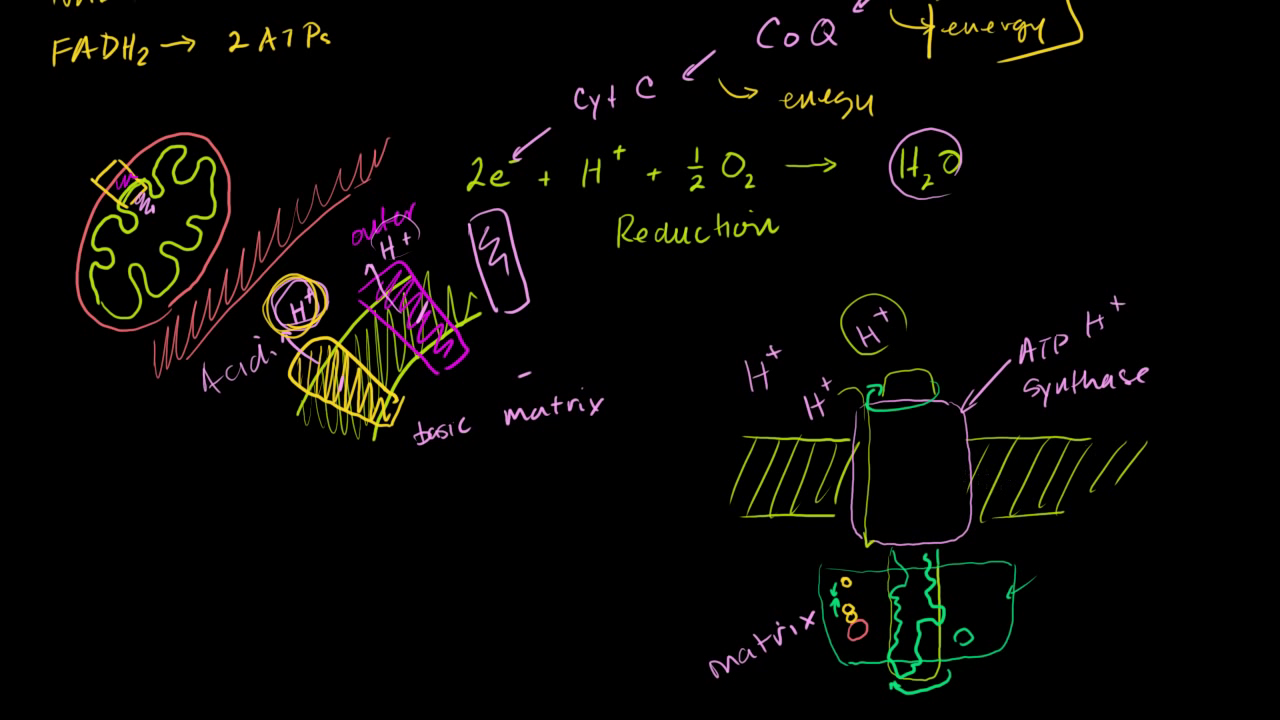 FADH₂ → 2 ATPs
CoQ
energy
Cyt C
enegy
2e⁻ + H⁺ + ½ O₂ → H₂O
Reduction
outer
H⁺
H⁺
Acidi
basic matrix
H⁺
H⁺
H⁺
ATP H⁺
Synthase
matrix